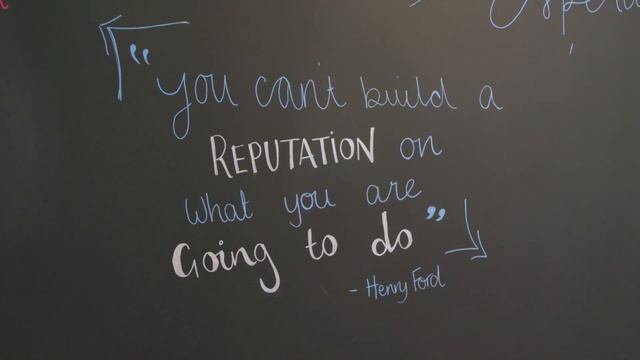 "you can't build a
REPUTATION on
what you are
Going to do"
- Henry Ford